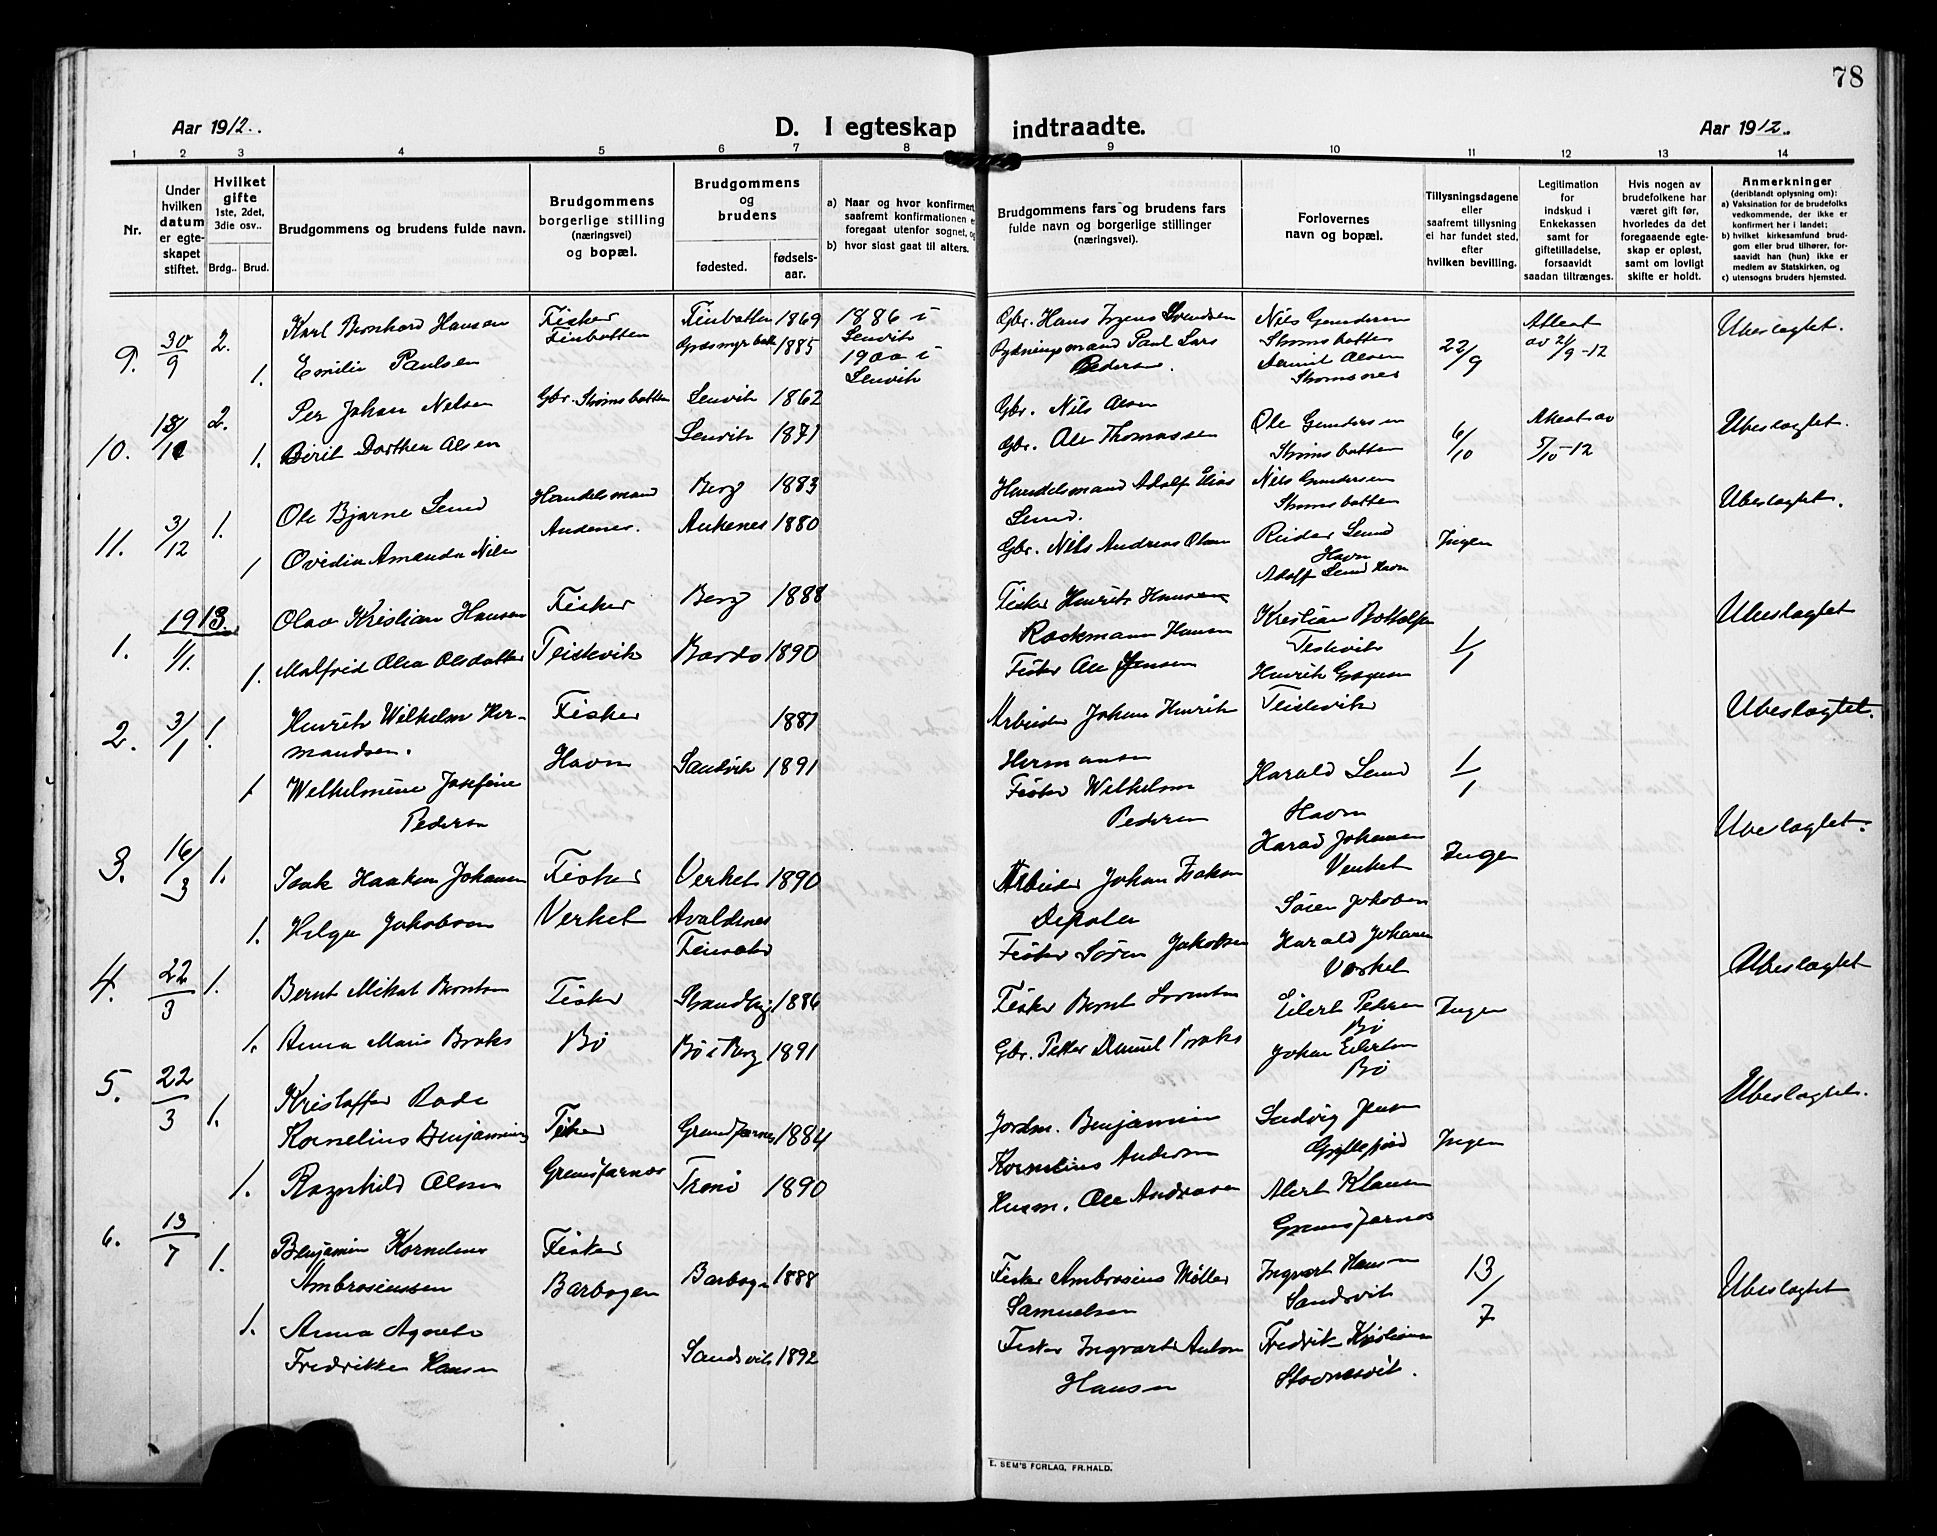 78
Aar 1912.
D. I egteskap indtraadte.
Aar 1912.
1 2 3 4 5 6 7 8 9 10 11 12 13 14
Nr.
Under hvilken datum er egteskapet stiftet.
Hvilket gifte
1ste, 2det, 3die osv..
Brdg.. Brud.
Brudgommens og brudens fulde navn.
Brudgommens borgerlige stilling (næringsvei) og bopæl.
Brudgommens og brudens
fødested.
fødselsaar.
a) Naar og hvor konfirmert, saafremt konfirmationen er foregaat utenfor sognet, og
b) hvor sidst gaat til alters.
Brudgommens fars og brudens fars fulde navn og borgerlige stillinger (næringsvei).
Forlovernes navn og bopæl.
Tillysningsdagene eller saafremt tillysning ei har fundet sted, efter hvilken bevilling.
Legitimation for indskud i Enkekassen samt for giftetilladelse, forsaavidt saadan tiltrænges.
Hvis nogen av brudefolkene har været gift før, hvorledes da det foregaaende egteskap er opløst, samt om lovligt skifte er holdt.
Anmerkninger
(deriblandt oplysning om):
a) Vaksination for de brudefolks vedkommende, der ikke er konfirmert her i landet;
b) hvilket kirkesamfund brudgom eller brud tilhører, forsaavidt han (hun) ikke er medlem av Statskirken, og
c) utensogns bruders hjemsted.
9. 30/9 2. Karl Bernhard Hansen Fisker Finbotten Finbotten 1869 1886 i Senvik
Gbr. Hans Svendsen Nils Gundersen Strømsbotten 22/9 Attest av 21/9-12 Ubeslegtet.
1. Emilie Paulsen 1885 1900 i Senvik
Rydningsmand Paul Lars Pedersen. Daniel Olsen Strømsnes
10. 2. Per Johan Nelsen Gbr. Strømsbotten Lenvik 1862
Gbr. Nils Olsen Ole Gundersen Strømsbotten 6/10 Attest av 5/10-12 Ubeslegtet.
1. Berit Dorthea Olsen Lenvik 1871
Gbr. Ole Thomassen Nils Gundersen Strømsbotten
11. 3/12 1. Ole Bjarne Lund Handelsmand Berg 1883
Handelsmand Adolf Elias Lund. Reidar Lund Havn Ingen Ubeslegtet.
1 Ovidia Amanda Nils Ankenes 1880
Gbr. Nils Andreas Olsen Adolf Lund Havn
1913.
1. 1/1. Olav Kristian Hansen Fisker Berg 1888
Fisker Henrik Hansen Rockmann Hansen Kristian 1/1 Ubeslegtet
1. Malfrid Olea Olsdatter Teistevik Bardo 1890
Fisker Ole Jensen Henrik Teistevik
2. 3/1 1. Henrik Wilhelm Hermandsen. Fisker Havn 1887
Arbeider Johan Henrik Hermansen Harald Lund Havn 1/1 Ubeslegtet.
1 Wilhelmine Josefine Pedersen Sandvik 1891
Fisker Wilhelm Pedersen
3. 16/3 1. Isak Haakon Johansen Fisker Verket Verket 1890
Arbeider Johan Harald Johansen Verket Ingen Ubeslegtet.
1. Helga Jakobsen Avaldsnes
Fisker Søren Jakobsen Søren Jakobsen Harald Johansen Verket
4. 22/3 1. Bernt Mikal Berntsen Fisker Bø 1886
Fisker Bernt Eilert Pedersen Bø Ingen Ubeslegtet
1. Anna Marie Broks Bø i Berg 1891
Gbr. Petter Daniel Broks Johan Eilertsen Bø
5. 22/3 1. Kristoffer Kornelius Benjaminsen Fisker 1884
Jordm. Benjamin Kornelius Andersen Ludvig Jensen Gryllefjord Ingen Ubeslegtet.
1. Ragnhild Olsen Tranø 1890
Husm. Ole Andreasen Klausen
6. 13/7 1. Benjamin Kornelius Ambrosiussen Fisker Barbogen Barbogen 1888
Fisker Ambrosius Møller Samuelsen Ingvart Hansen Sandsvik 13/7 Ubeslegtet
1. Anna Agnete Fredrikke Hansen Sandsvik 1892
Fisker Ingvart Anton Hansen Fredrik Kristiansen
E. SEM'S FORLAG, FR.HALD.